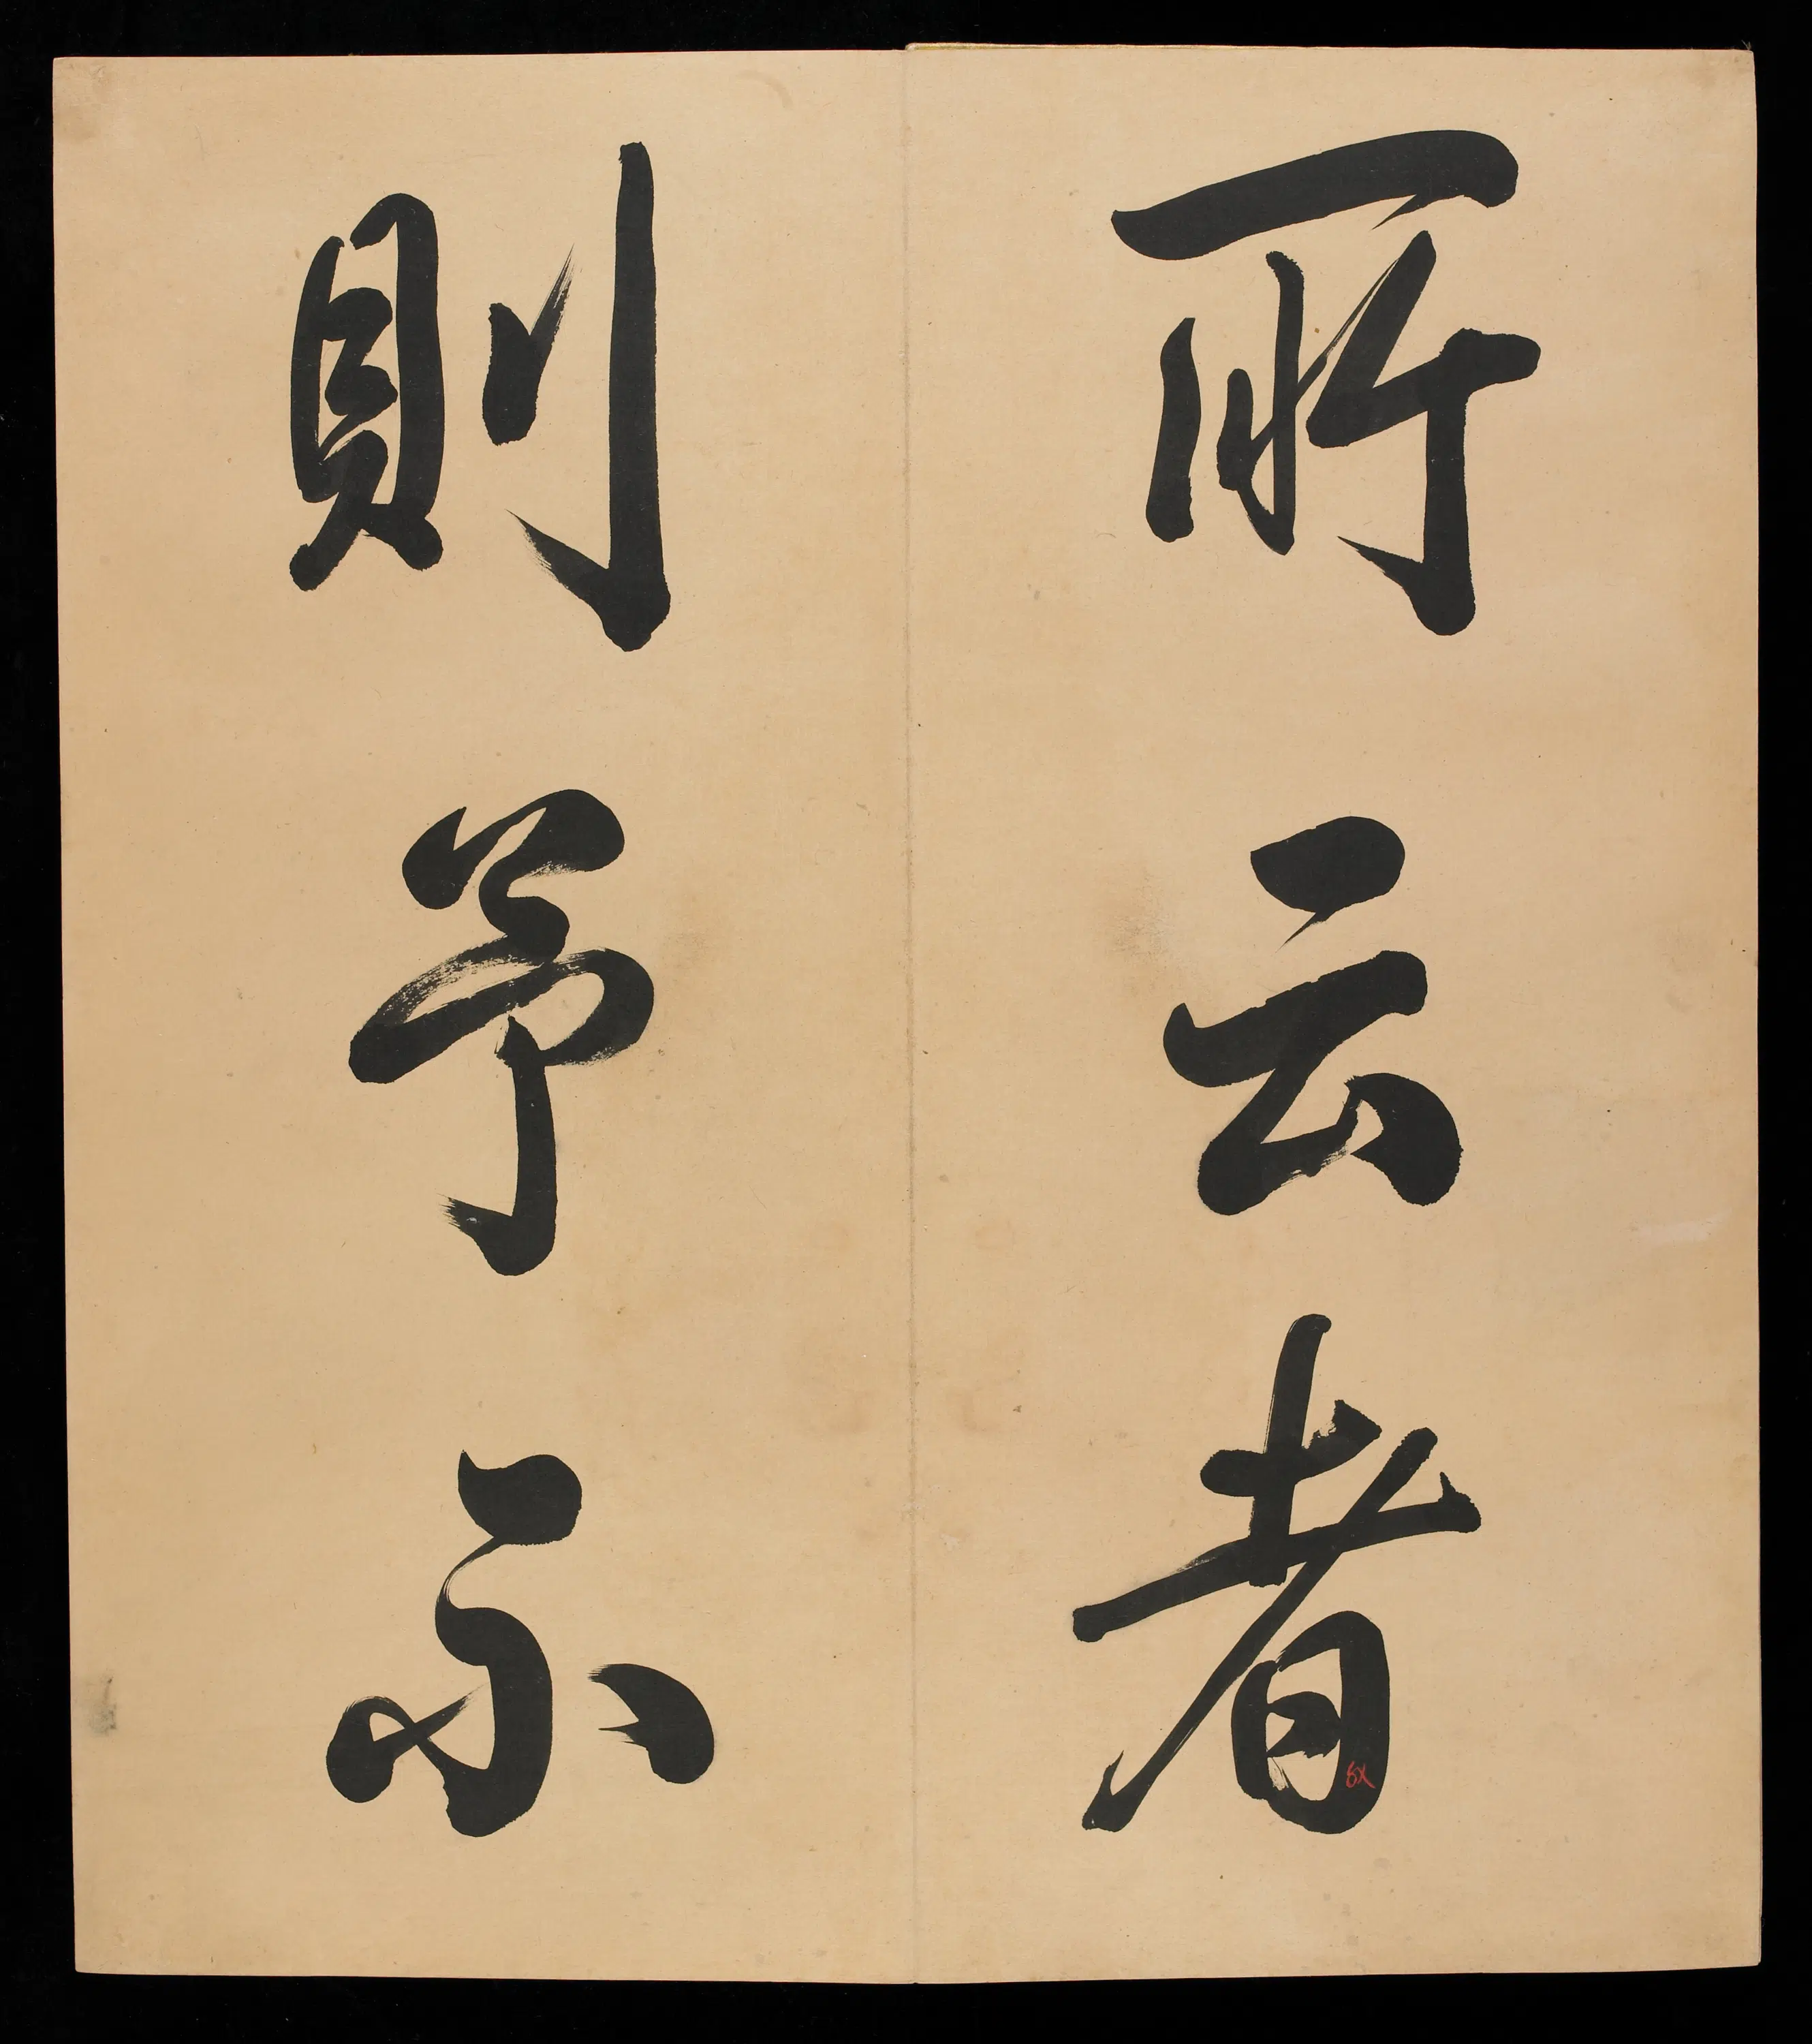 所云者
則予不